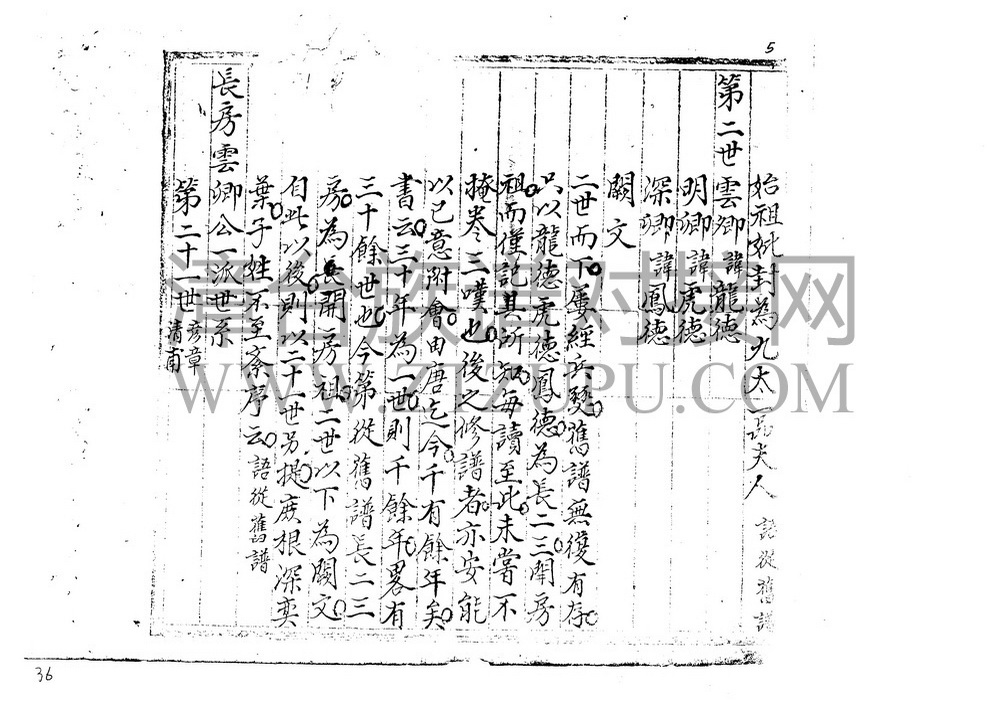 5
始祖妣封為九太一馮夫人 語從舊譜
第二世雲卿 諱龍德
明卿 諱虎德
深卿 諱鳳德
闕文
二世而下屢經兵燹舊譜無復有存
只以龍德虎德鳳德為長二三開房
祖而僅記其所知每讀至此未嘗不
掩卷三嘆也後之修譜者亦安能
以己意附會由唐迄今千有餘年矣
書云三十年為一世則千餘年畧有
三十餘世也今第從舊譜長二三
房為長開房祖二世以下為闕文
自此以後則以二十一世另提庶根深奕
葉子姓不至紊序云 語從舊譜
長房雲卿公一派世系
第二十一世 彥章 清甫
36
清谷族谱对接网
WWW.ZTZUPU.COM